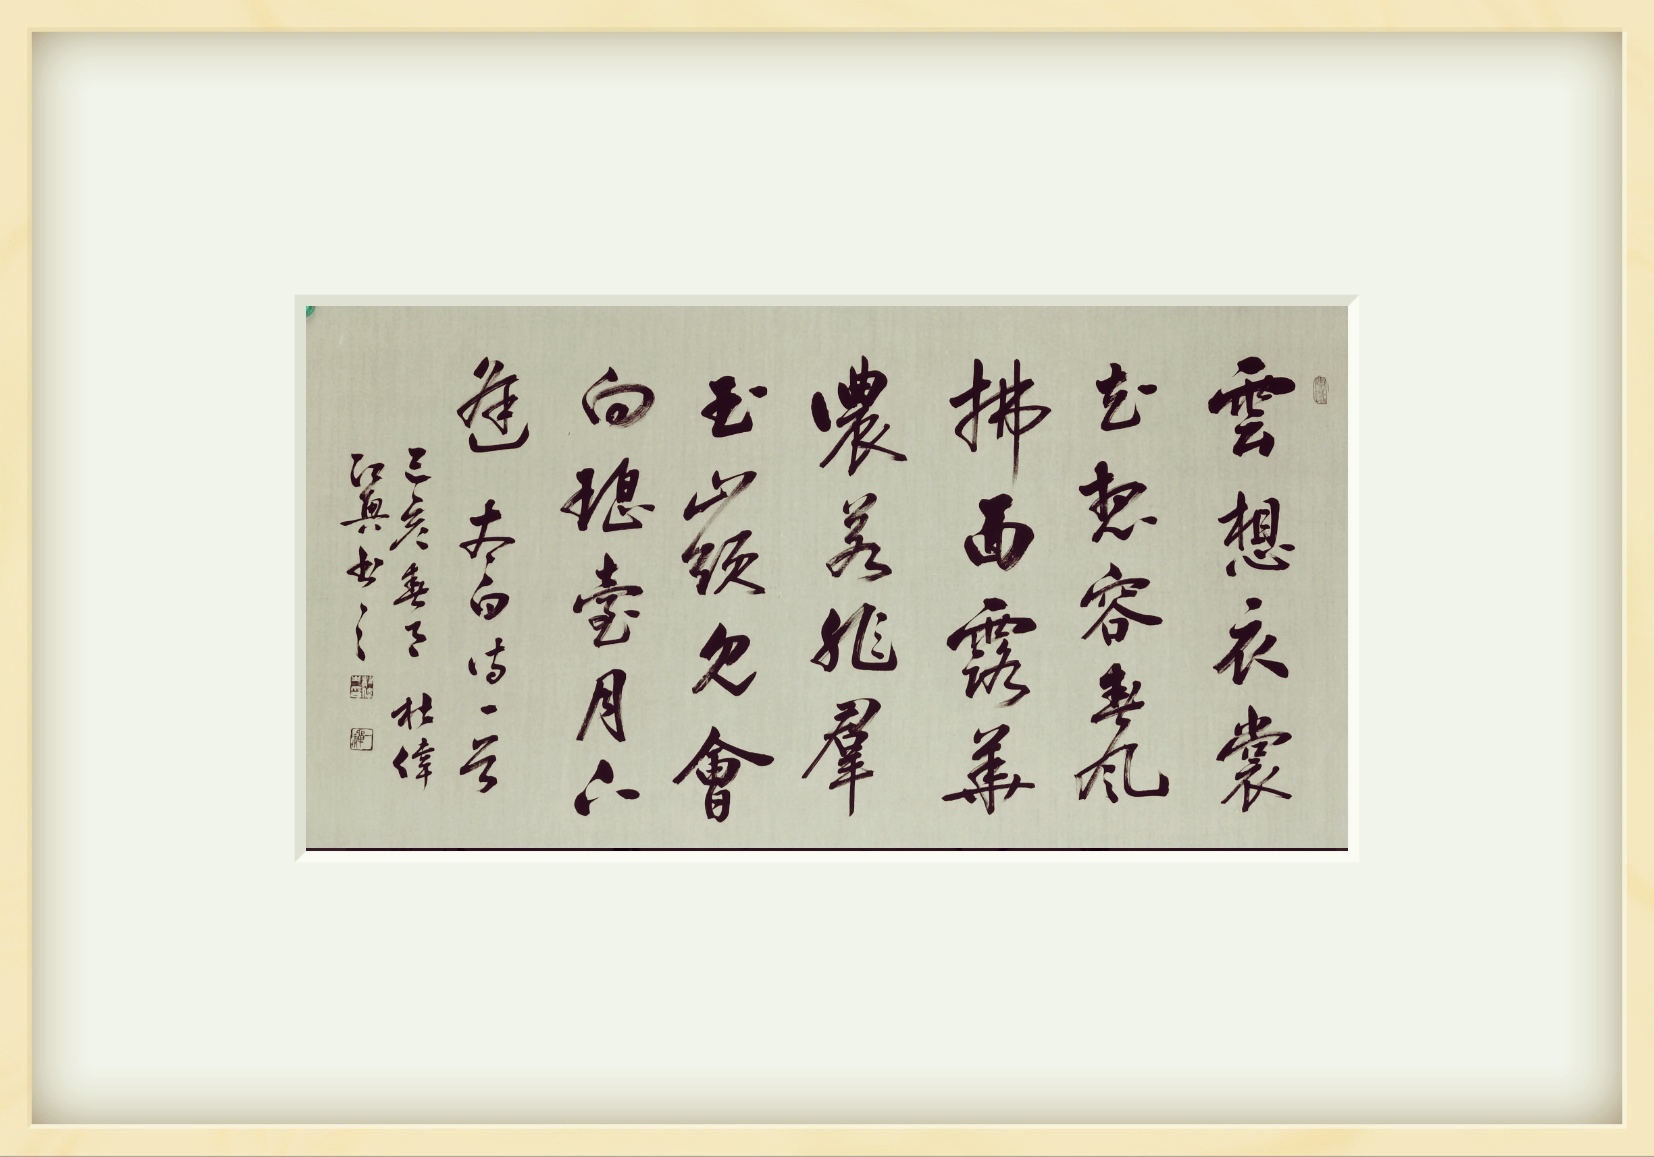 雲想衣裳
花想容春風
拂面露華
濃若非羣
玉山頭見會
向瑤臺月下
逢 太白诗一首
己亥春月 杜偉
书之